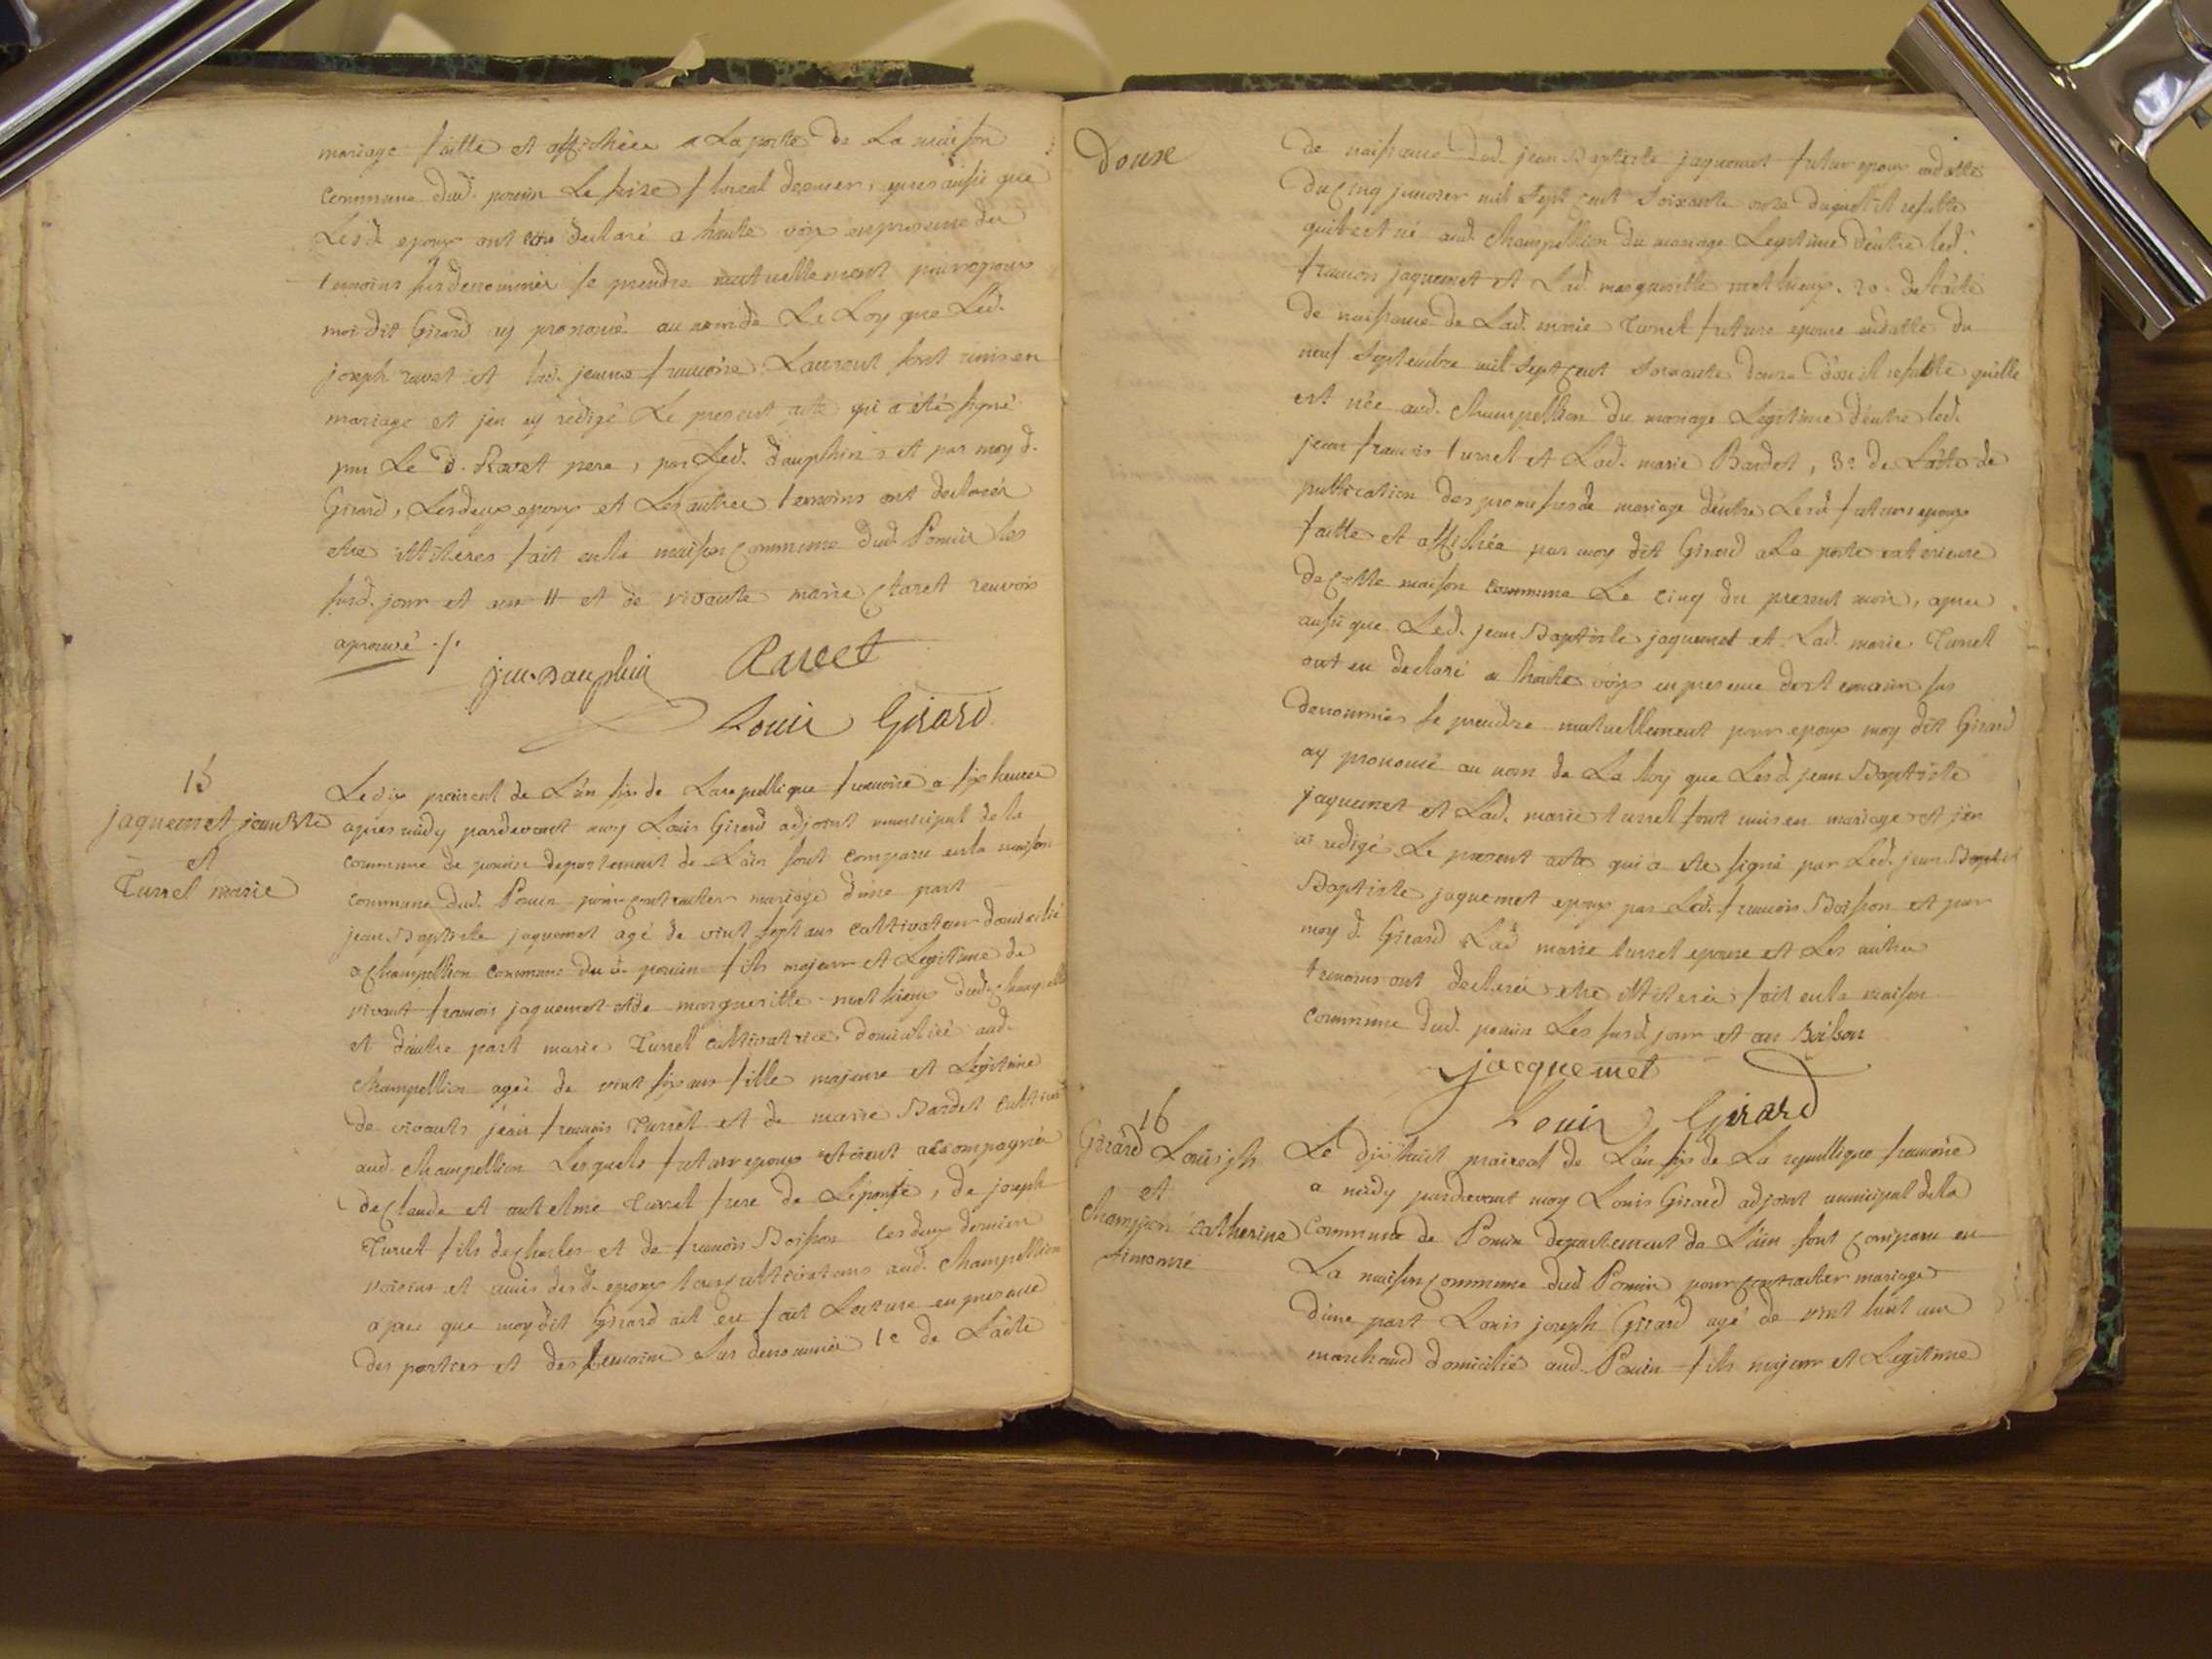 mariage faitte et affichée a la porte de La maison
commune dud. poncin Le seize floreal dernier, apres aussi que
Lesd. epoux ont declaré a haute voix en presence des
temoins susdenommés se prendre mutuellement pour epoux
moi dit Girard ay prononcé au nom de La Loy que Led.
joseph ravet et lad. jeanne françoise Laurent sont unis en
mariage et j'en ay redigé Le present acte qui a été signé
par Le d. Ravet pere, par Led. dauphin et par moy d.
Girard, Lesdeux epoux et Les autres temoins ont declarés
etre illiteres fait en la maison commune dud. Poncin les
susd. jour et an et de vivante marie Claret renvois
aprouvé ./.
Dauphin Ravet
Louis Girard
15
jaquemet jean Bte
et
Turrel marie
Le dix prairial de L'an six de La republique francoise a six heures
apres midy pardevant moy Louis Girard adjoint municipal de la
commune de poncin departement de L'ain sont comparu en la maison
commune dud. Poncin pour contracter mariage d'une part
jean Baptiste jaquemet agé de vint sept ans cultivateur domicilié
a Champellion commune dud. poncin fils majeur et Legitime de
vivant francois jaquemet et de margueritte mathieux dud. Champellion
et d'autre part marie Turrel cultivatrice domiciliée aud.
Champellion agée de vint six ans fille majeure et Legitime
de vivants jean francois Turrel et de marie Bardet cultivat
aud. Champellion Lesquels futurs epoux etoient accompagnés
de Claude et antelme Turrel frere de L'epouse, de joseph
Turrel fils de Charles et de francois Boisson ces deux derniers
voisins et amis desd. epoux tous cultivateurs aud. Champellion
apres que moy dit Girard ait eu fait Lecture en presence
des parties et des temoins sus denommés 1e de L'acte
Douze
de naissance dud. jean Baptiste jaquemet futur epoux en datte
du cinq janvier mil sept cent soixante onze duquel il resulte
qu'il est né aud. Champellion du mariage Legitime d'entre led.
francois jaquemet et Lad. margueritte mathieux. 2o. de l'acte
de naissance de Lad. marie Turrel future epouse en datte du
neuf septembre mil sept cent soixante douze d'ou il resulte qu'elle
est née aud. Champellion du mariage Legitime d'entre led.
jean francois turrel et Lad. marie Bardet, 3e de L'acte de
publication des promesses de mariage d'entre Lesd. futurs epoux
faitte et affichée par moy dit Girard a La porte exterieure
de cette maison commune Le cinq du present mois, apres
aussi que Led. jean Baptiste jaquemet et Lad. marie Turrel
ont eu declaré a haute voix en presence des temoins sus
denommés se prendre mutuellement pour epoux moy dit Girard
ay prononcé au nom de La Loy que Lesd. jean Baptiste
jaquemet et Lad. marie turrel sont unis en mariage et j'en
ai redigé Le present acte qui a ete signé par Led. jean Baptis
Baptiste jaquemet epoux par Led. francois Boisson et par
moy d. Girard Lad. marie turrel epouse et Les autres
temoins ont declarés etre illiterés fait en la maison
commune dud. poncin Les susd. jour et an
jacquemet
Louis Girard
16
Girard Louis jph
et
Champion Catherine
Simonne
Le dixhuit prairial de L'an six de La republique francoise
a midy pardevant moy Louis Girard adjoint municipal de la
Commune de Poncin departement de L'ain sont comparu en
La maison commune dud. Poncin pour contracter mariage
d'une part Louis joseph Girard agé de vint huit ans
marchand domicilié aud. Poncin fils majeur et Legitime